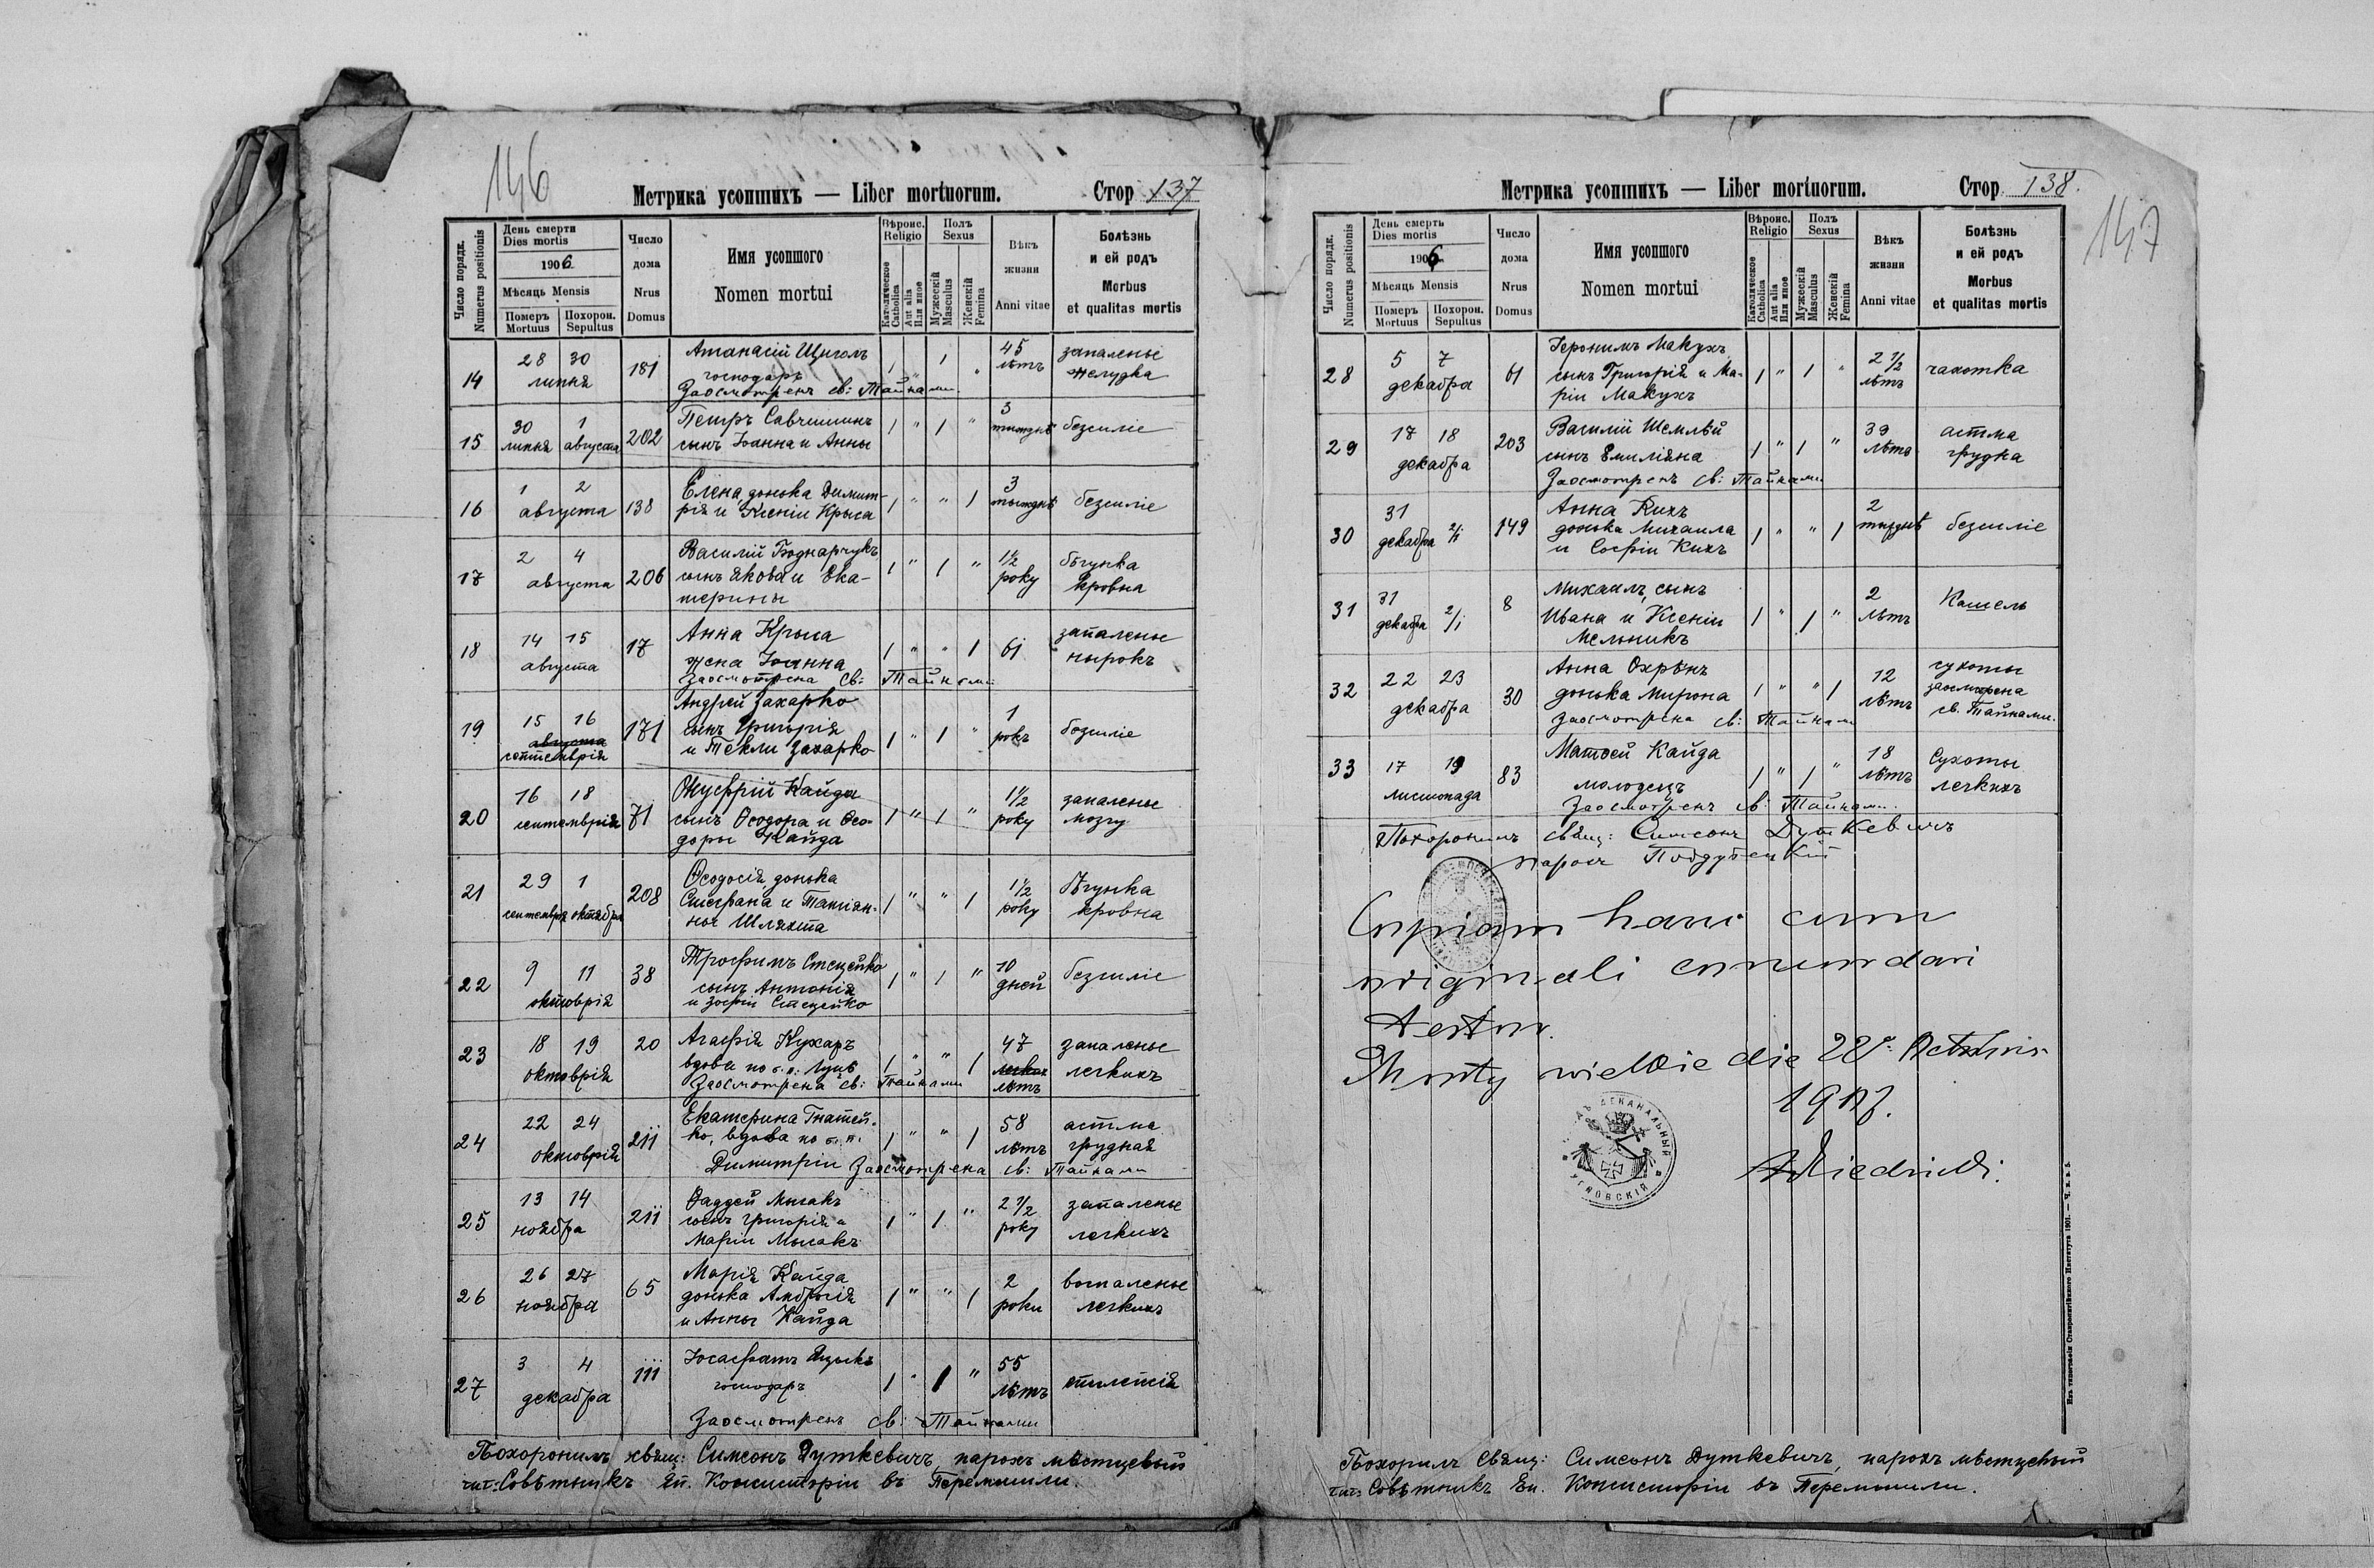 146
Метрика усопшихъ — Liber mortuorum.
Стор 137
Число порядк.
Numerus positionis
День смерти
Dies mortis
1906
Мѣсяць Mensis
Померъ
Mortuus
Похорон.
Sepultus
Число
дома
Nrus
Domus
Имя усопшого
Nomen mortui
Вѣроис.
Religio
Католическое
Catholica
Aut alia
Или иное
Полъ
Sexus
Мужескій
Masculus
Женскій
Femina
Вѣкъ
жизни
Anni vitae
Болѣзнь
и ей родъ
Morbus
et qualitas mortis
14 28 30 липня 181 Атанасій Щиголъ 1 " 1 " 45 лѣтъ запаленье желудка
господаръ
Заосмотренъ св: Тайнами
15 30 липня 1 августа 202 Петръ Савчишинъ 1 " 1 " 3 безсиліе
сынъ Іоанна и Анны
16 1 2 августа 138 Елена донька Димит- 1 " " 1 3 тыждне безсиліе
рія и Ксеніи Крыса
17 2 4 августа 206 Василій Боднарчукъ 1 " 1 " 1½ року бѣгунка кровна
сынъ Якова и Ека-
терины
18 14 15 августа 17 Анна Крыса 1 " " 1 61 запаленье нырокъ
жена Іоанна
Заосмотрена св: Тайнами
19 15 16 августа септемврія 171 Андрей Захарко 1 " 1 " 1 рокъ безсиліе
сынъ Григорія
и Текли Захарко
20 16 18 септемврія 71 Онуфрій Кайда 1 " 1 " 1½ року запаленье мозгу
сынъ Ѳеодора и Ѳео-
доры Кайда
21 29 септемврія 1 октября 208 Ѳеодосія донька 1 " " 1 1½ року бѣгунка кровна
Стефана и Татіян-
ны Шляхта
22 9 11 октоврія 38 Трофимъ Стецейко 1 " 1 " 10 дней безсиліе
сынъ Антонія
и Зофіи Стецейко
23 18 19 октоврія 20 Агафія Кухаръ 1 " " 1 47 лѣтъ запаленье легкихъ
вдова по б. п.
Заосмотрена св: Тайнами
24 22 24 октоврія 211 Екатерина Гнатей- 1 " " 1 58 лѣтъ астма грудная
ко, вдова по б. п.
Димитріи Заосмотрена св: Тайнами
25 13 14 ноября 211 Фаддей Мысакъ 1 " 1 " 2 ½ року запаленье легкихъ
сынъ Григорія и
Маріи Мысакъ
26 26 27 ноября 65 Марія Кайда 1 " " 1 2 роки вопаленье легкихъ
донька Амброзія
и Анны Кайда
27 3 4 декабра 111 Іосафатъ 1 " 1 " 55 лѣтъ
господаръ
Заосмотренъ св: Тайнами
Похоронилъ свящ: Симеонъ Дуткевичъ, парохъ мѣстцевый
тит: Совѣтникъ Еп. Консисторіи въ Перемышли.
Метрика усопшихъ — Liber mortuorum.
Стор 138.
147
Число порядк.
Numerus positionis
День смерть
Dies mortis
1906
Мѣсяць Mensis
Померъ
Mortuus
Похорон.
Sepultus
Число
дома
Nrus
Domus
Имя усопшого
Nomen mortui
Вѣроис.
Religio
Католическое
Catholica
Aut alia
Или иное
Полъ
Sexus
Мужескій
Masculus
Женскій
Femina
Вѣкъ
жизни
Anni vitae
Болѣзнь
и ей родъ
Morbus
et qualitas mortis
28 5 7 декабра 61 Іеронимъ Макухъ 1 " 1 " 2 ½ лѣтъ чахотка
сынъ Григорія и Ма-
ріи Макухъ
29 17 18 декабра 203 Василій Шемлѣй 1 " 1 " 39 лѣтъ астма грудна
сынъ Емиліяна
Заосмотренъ св: Тайнами
30 31 декабра 2/1 149 Анна Кихъ 1 " " 1 2 безсиліе
донька Михаила
и Софіи Кихъ
31 31 декабра 2/1 8 Михаилъ, сынъ 1 " 1 " 2 лѣтъ Кашель
Ивана и Ксеніи
Мельникъ
32 22 23 декабра 30 Анна Охрѣнъ 1 " " 1 12 лѣтъ сухоты
донька Мирона заосмотрена
Заосмотрена св: Тайнами св. Тайнами.
33 17 19 листопада 83 Матѳей Кайда 1 " 1 " 18 лѣтъ Сухоты легкихъ
молодецъ
Заосмотренъ св: Тайнами.
Похоронилъ свящ: Симеонъ Дуткевичъ
парохъ
Copiam hanc cum
originali concordari
testor.
Mosty wielkie die 28 Octobris
1907.
ДЕКАНАЛЬНЫЙ
УГНОВСКІЙ
Похорилъ Свящ: Симеонъ Дуткевичъ, парохъ мѣстцевый
тит: Совѣтникъ Еп. Консисторіи въ Перемышли.
Изъ типографіи Ставропигійского Института 1901.